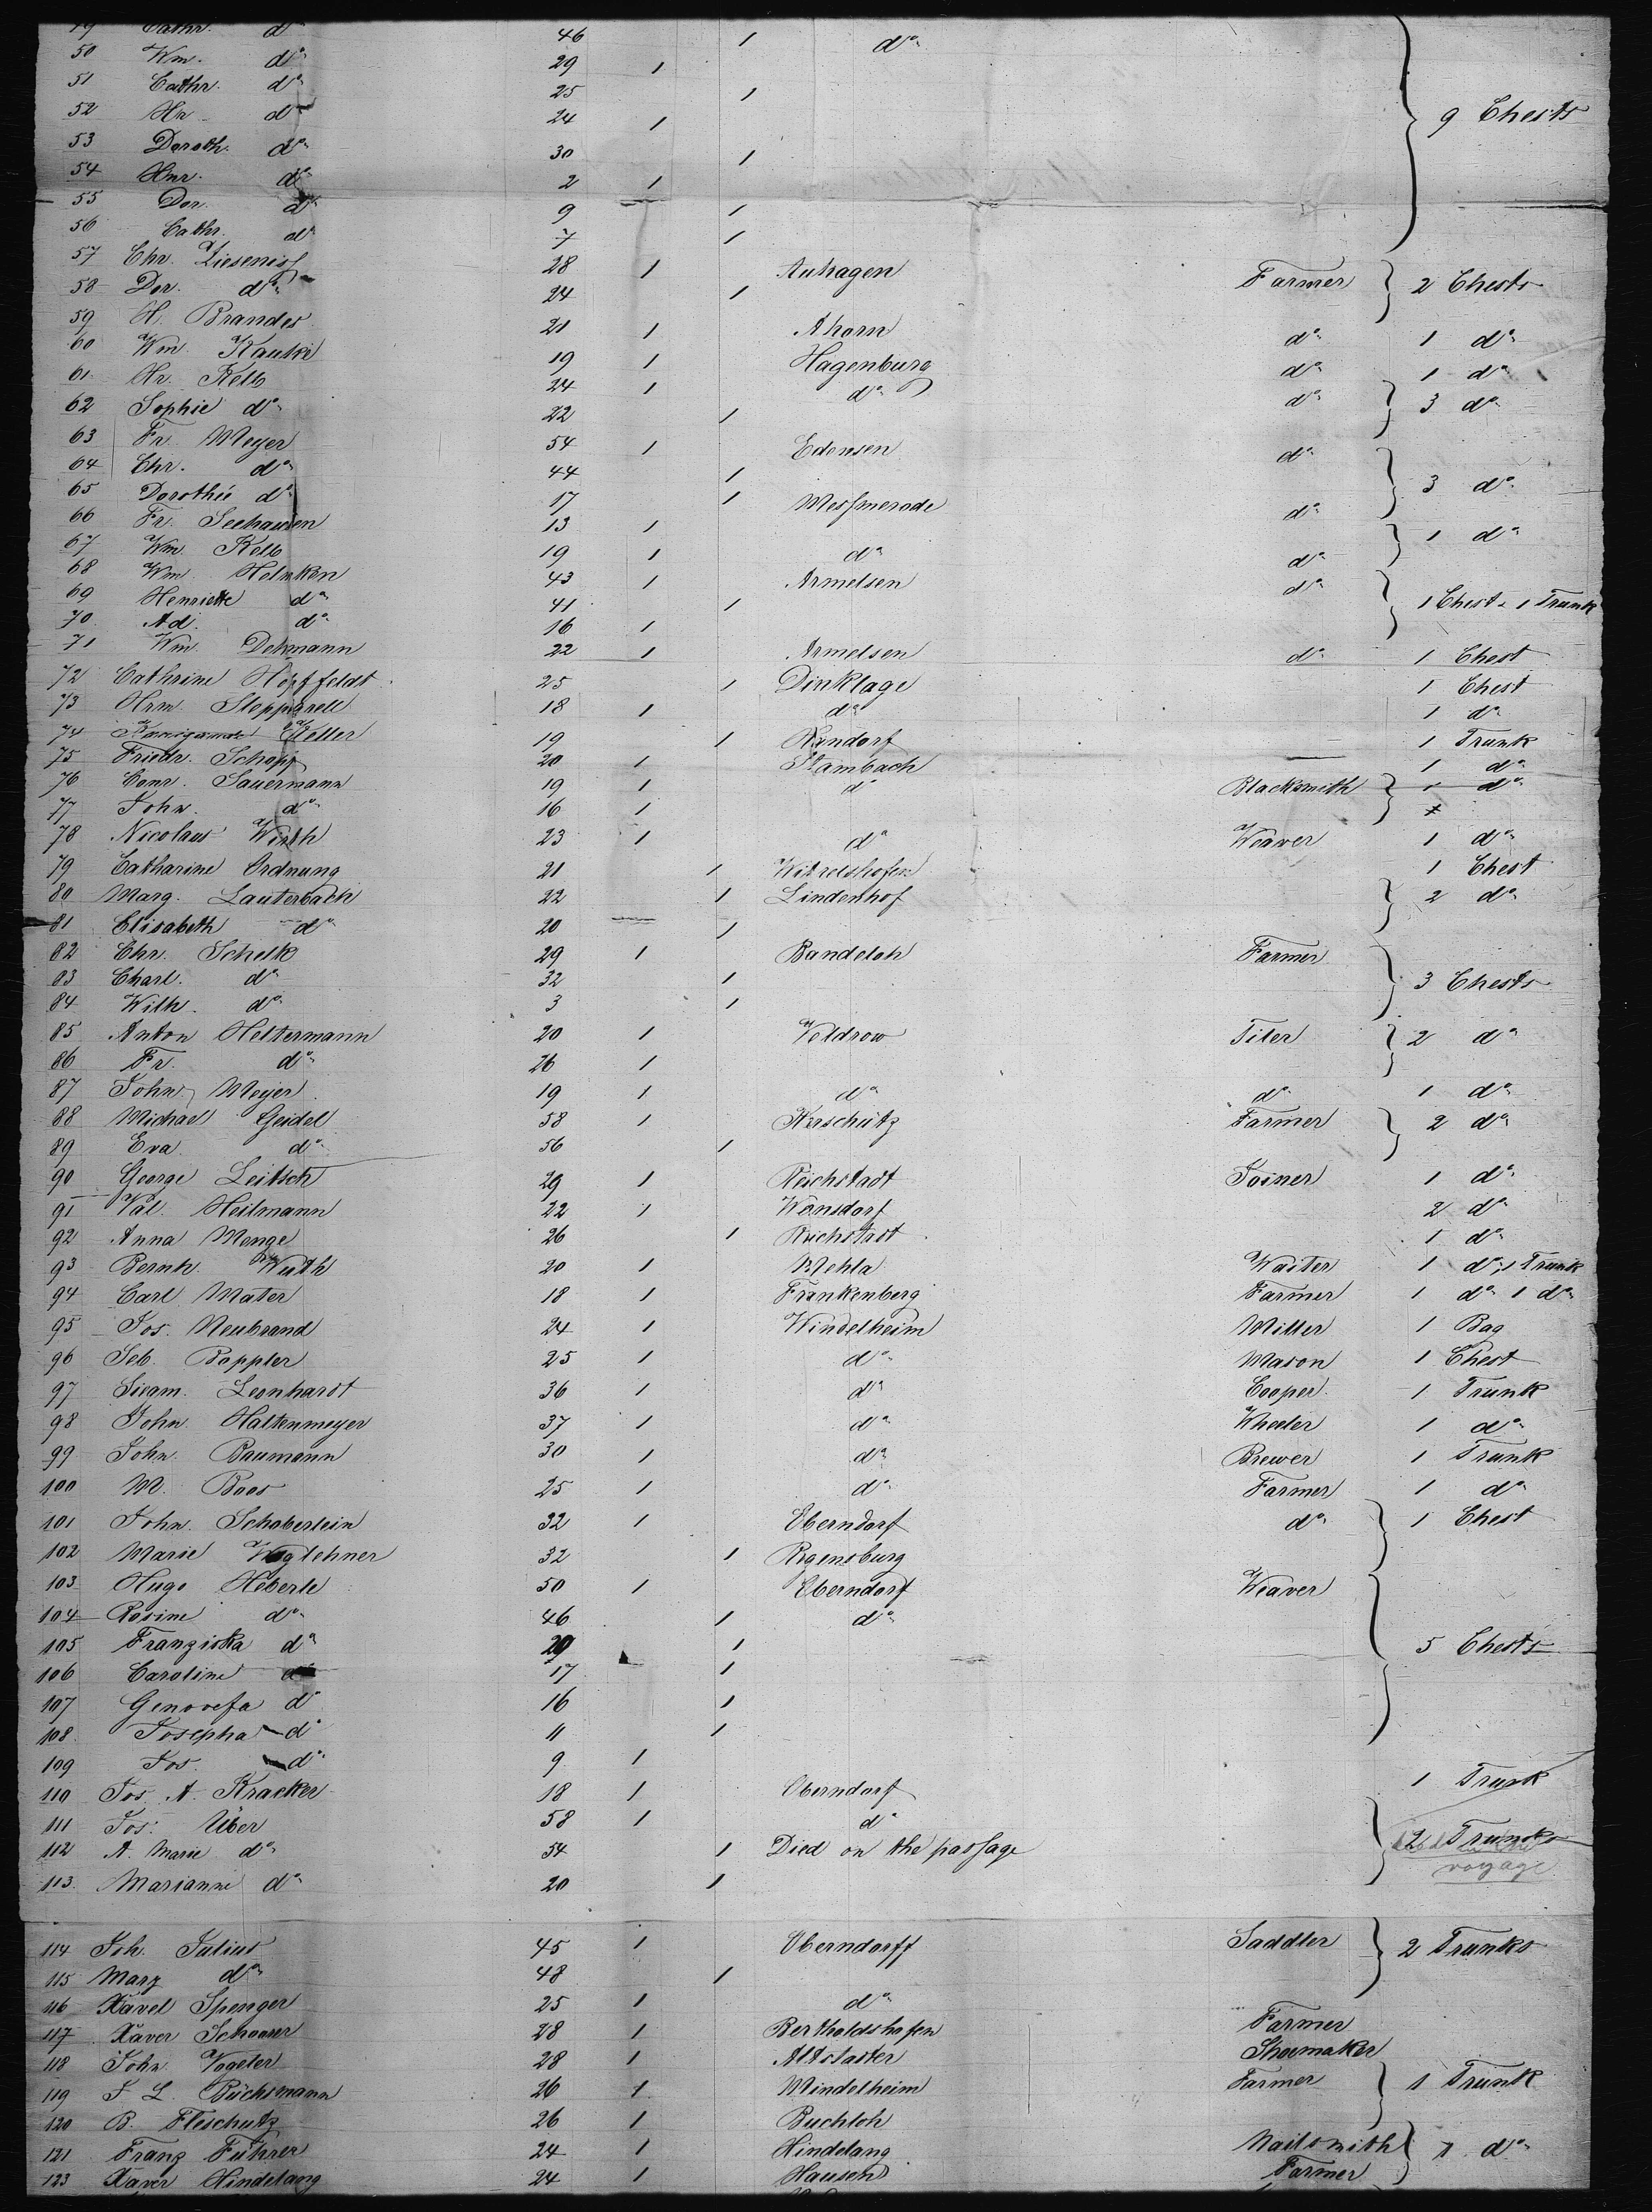 Cathr. do 46 1 do
50 Wm. do 29 1
51 Cathr. do 25 1
52 Hr. do 24 1 9 Chests
53 Doroth. do 30 1
54 Hnr. do 2 1
55 Dor. do 9 1
56 Cathr. do 7 1
57 Chr. Ziesenis 28 1 Auhagen Farmer 2 Chests
58 Dor. do 24 1
59 H. Brandes 21 1 Ahorn do 1 do
60 Wm. Kauke 19 1 Hagenburg do 1 do
61 Hr. Kelb 24 1 do do 3 do
62 Sophie do 22 1
63 Fr. Meyer 54 1 Edensen do
64 Chr. do 44 1 3 do
65 Dorothée do 17 1 Messmerode do
66 Fr. Seehausen 13 1 1 do
67 Wm. Kelb 19 1 do do
68 Wm. Helmken 43 1 Armelsen do
69 Henriette do 41 1 1 Chest & 1 Trunk
70 Ad. do 16 1
71 Wm. Dehmann 22 1 Armelsen do 1 Chest
72 Cathrine Hopffeldt 25 1 Dinklage 1 Chest
73 Hrm. 18 1 do 1 do
74 Keller 19 1 1 Trunk
75 Friedr. Schopf 20 1 Stambach 1 do
76 Conr. Sauermann 19 1 do Blacksmith 1 do
77 John. do 16 1
78 Nicolaus Wirth 23 1 do Weaver 1 do
79 Catharine Ordnung 21 1 Witzelshofen 1 Chest
80 Marg. Lauterbach 22 1 Lindenhof 2 do
81 Elisabeth do 20 1
82 Chr. Schelk 29 1 Bandeloh Farmer
83 Charl. do 32 1 3 Chests
84 Wilh. do 3 1
85 Anton Heltermann 20 1 Veldrow Tiler 2 do
86 Fr. do 26 1
87 John. Meyer 19 1 do do 1 do
88 Michael Geidel 58 1 Kerschütz Farmer 2 do
89 Eva do 56 1
90 George Leitsch 29 1 Reichstadt Joiner 1 do
91 Val. Heilmann 22 1 Wansdorf 2 do
92 Anna Menge 26 1 Reichstadt 1 do
93 Bernh. Wuth 20 1 Mehla Waiter 1 do, 1 Trunk
94 Carl Mater 18 1 Frankenberg Farmer 1 do 1 do
95 Jos. Neubrand 24 1 Windelheim Miller 1 Bag
96 Seb. Boppler 25 1 do Mason 1 Chest
97 Leonhardt 36 1 do Cooper 1 Trunk
98 John. Haltenmeyer 37 1 do Wheeler 1 do
99 John. Baumann 30 1 do Brewer 1 Trunk
100 M. Boos 25 1 do Farmer 1 do
101 John. Schaberlein 32 1 Oberndorf do 1 Chest
102 Marie Woglehner 32 1 Rgensburg
103 Hugo Heberle 50 1 Oberndorf Weaver
104 Rosine do 46 1 do
105 Franziska do 20 1 5 Chests
106 Caroline do 17 1
107 Genovefa do 16 1
108 Josepha do 11 1
109 Jos. do 9 1
110 Jos. A. Kracker 18 1 Oberndorf 1 Trunk
111 Jos. Über 58 1 do
112 A. Marie do 54 1 Died on the passage 2 Trunks
voyage
113 Marianne do 20 1
114 Joh. Julius 45 1 Oberndorff Saddler 2 Trunks
115 Marg do 48 1
116 Xavel Spenger 25 1 do
117 Xaver Schoner 28 1 Bertholdshofen Farmer
118 John. Vogeler 28 1 Altstadter Shoemaker
119 J. L. Büchsmann 26 1 Mindelheim Farmer 1 Trunk
120 B. Fleschutz 26 1 Buchloh
121 Franz Führer 24 1 Hindelang Nailsmith 1 do
123 Xaver Hindelang 24 1 Hausen Farmer